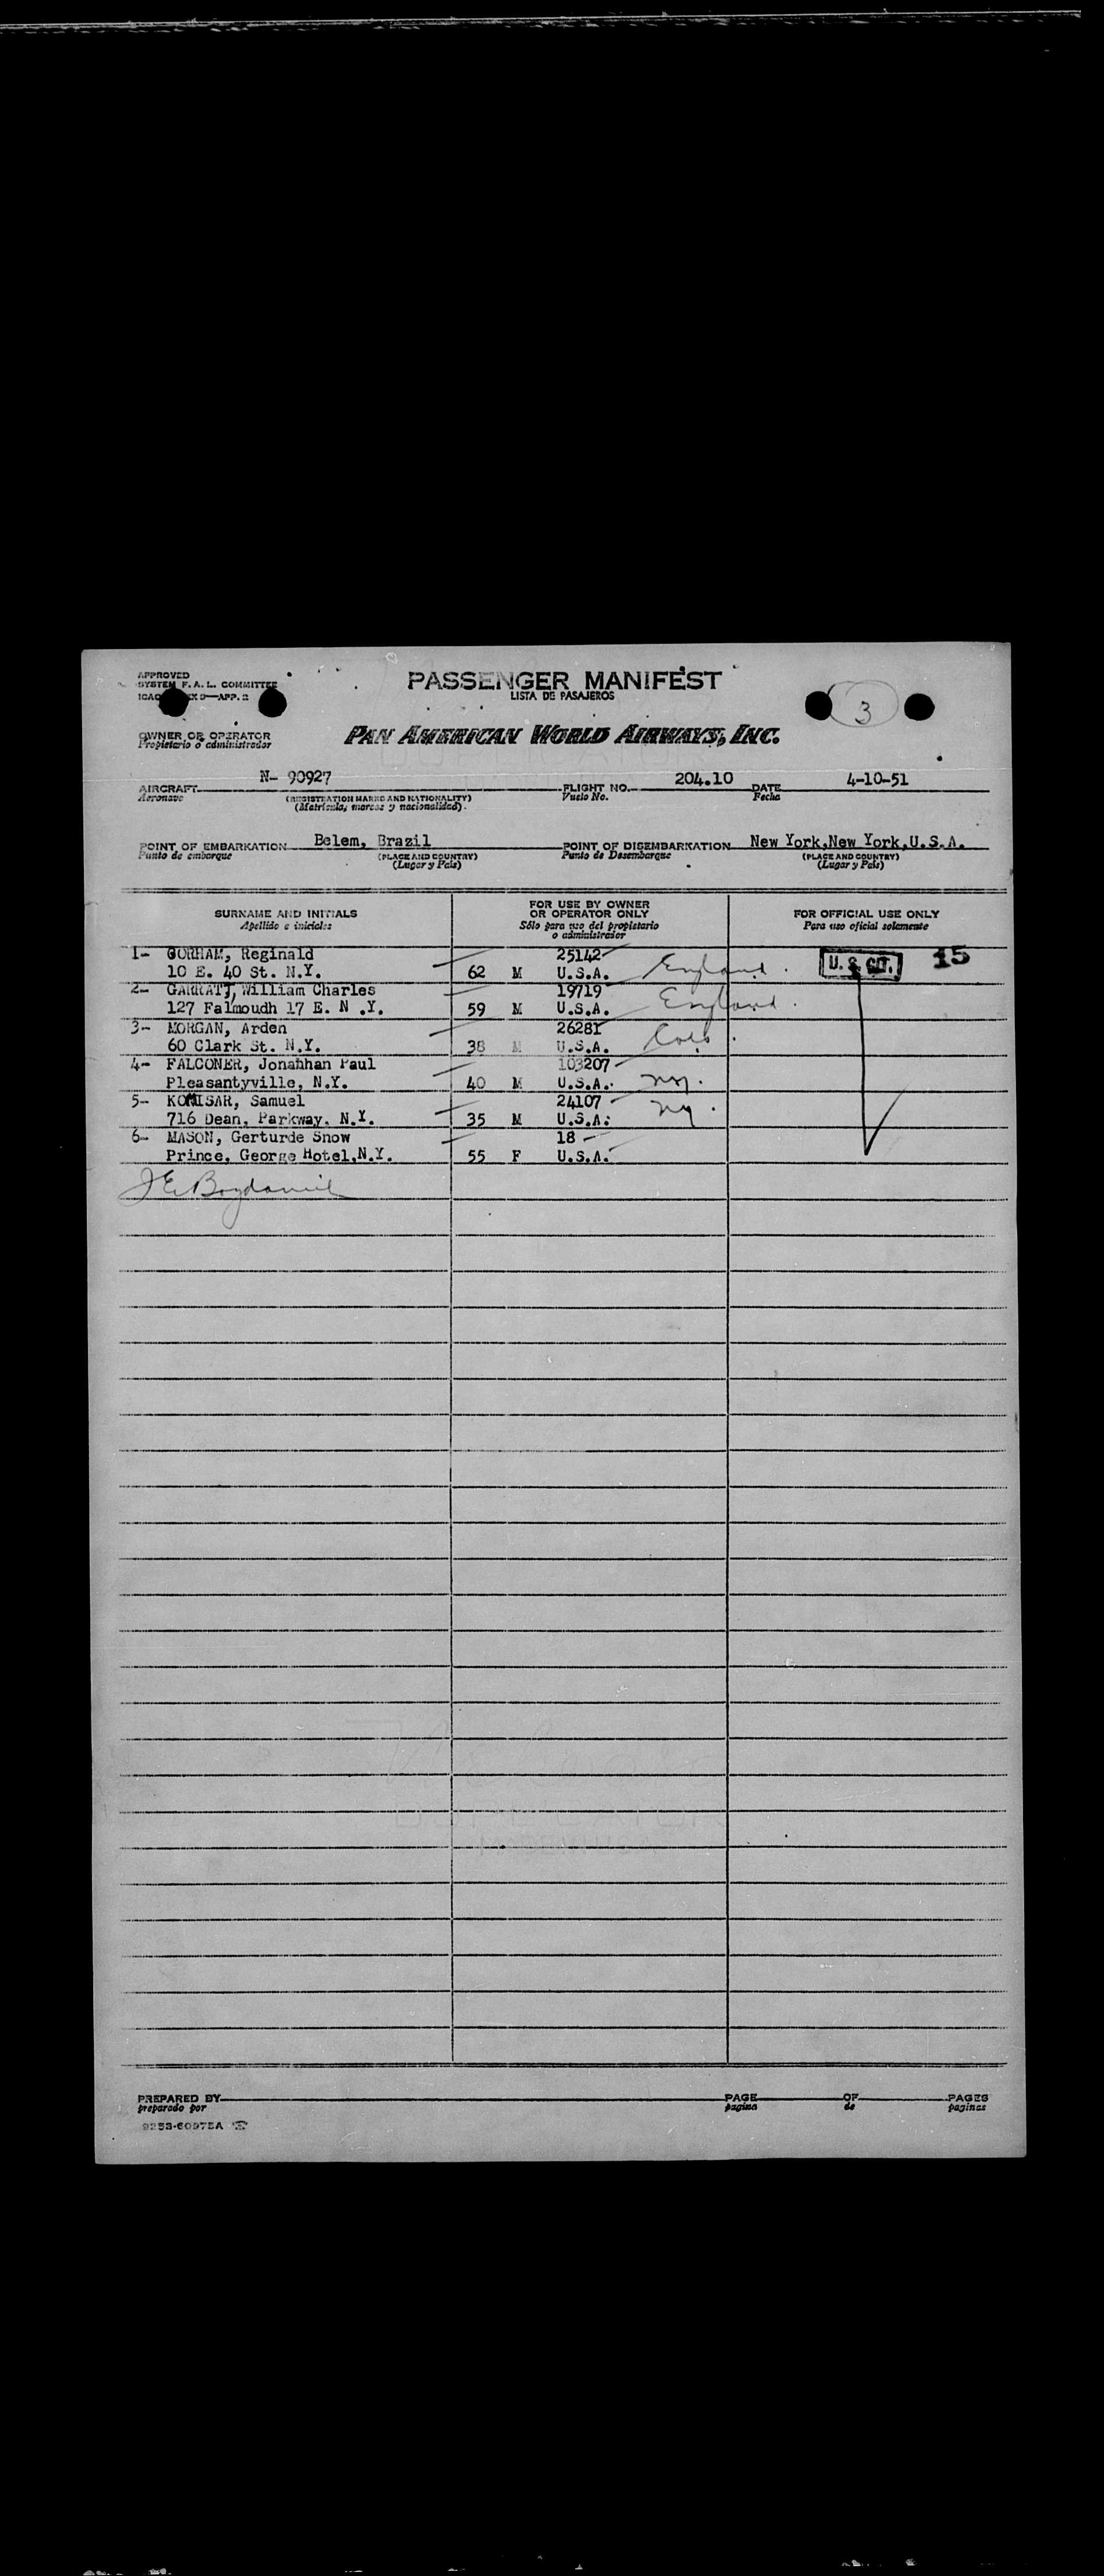 APPROVED
SYSTEM F. A. L. COMMITTEE
APP. 2
PASSENGER MANIFEST
LISTA DE PASAJEROS
3
OWNER OR OPERATOR
Propietario o administrador
PAN AMERICAN WORLD AIRWAYS, INC.
AIRCRAFT N- 90927 FLIGHT NO. 204.10 DATE 4-10-51
Aeronave (REGISTRATION MARKS AND NATIONALITY) Vuelo No. Fecha
(Matrícula, marcas y nacionalidad).
POINT OF EMBARKATION Belem, Brazil POINT OF DISEMBARKATION New York,New York,U.S.A.
Punto de embarque (PLACE AND COUNTRY) Punto de Desembarque (PLACE AND COUNTRY)
(Lugar y País) (Lugar y País)
SURNAME AND INITIALS FOR USE BY OWNER OR OPERATOR ONLY FOR OFFICIAL USE ONLY
Apellido e iniciales Sólo para uso del propietario o administrador Para uso oficial solamente
1- GORHAM, Reginald 25142 U. S. CIT. 15
10 E. 40 St. N.Y. 62 M U.S.A. England.
2- GARRATT, William Charles 19719
127 Falmoudh 17 E. N .Y. 59 M U.S.A. England.
3- MORGAN, Arden 26281
60 Clark St. N.Y. 38 M U.S.A. Colo.
4- FALCONER, Jonahhan Paul 103207
Pleasantyville, N.Y. 40 M U.S.A. NY.
5- KOMISAR, Samuel 24107
716 Dean, Parkway. N.Y. 35 M U.S.A. NY.
6- MASON, Gerturde Snow 18
Prince, George Hotel,N.Y. 55 F U.S.A.
PREPARED BY PAGE OF PAGES
preparado por pagina de paginas